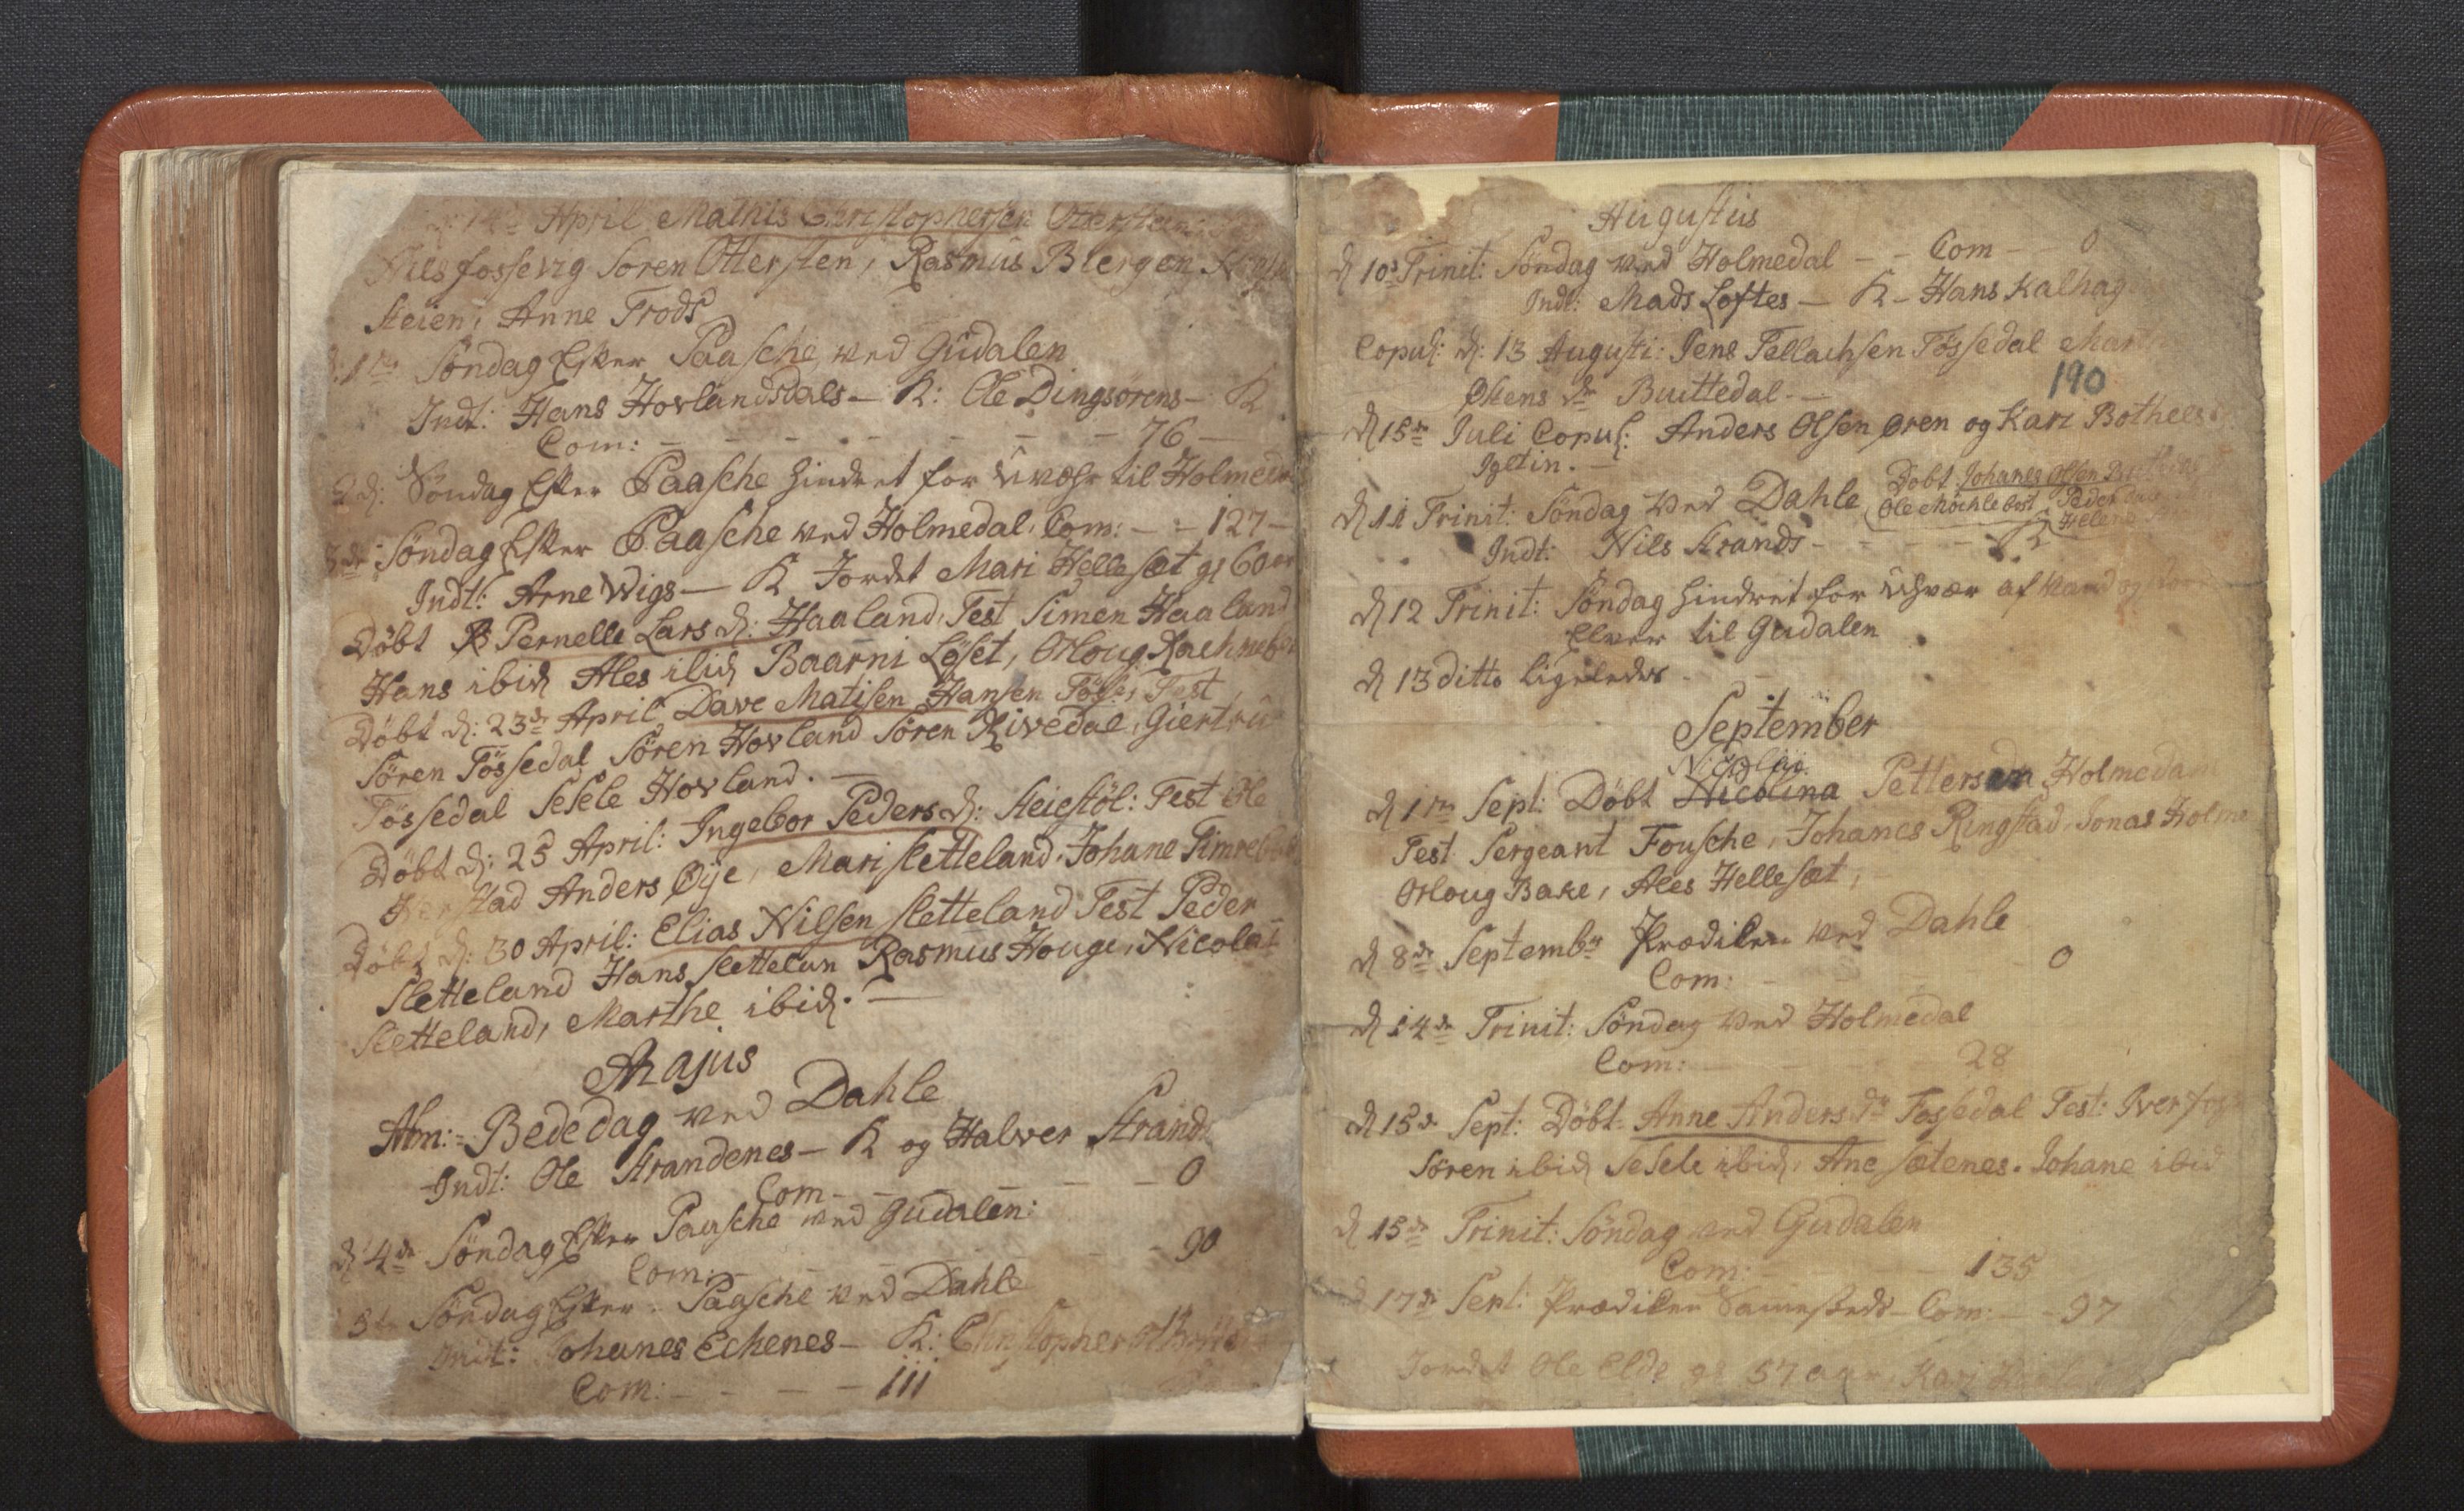 14de April Mathis Christophersen Ottersteen
Nils fossevig Soren Ottersten, Rasmus Bergen
steien, Anne Trods
d: 1te Søndag Efter Paasche ved Gudalen
Indt: Hans Hovlandsdals - K: Ole Dingsørens - K
Com: - - - - - - - - 76 -
2 d: Søndag Efter Paasche hindret for uvæhr til Holmedal
3de Søndag Efter Paasche ved Holmedal. Com: - - 127 -
Indt: Arne Wigs - K Jordet Mari Hellesæt gl 60
Døbt Pernelle Lars d: Haaland, Test Simen Haaland
Hans ibid Ales ibid Baarni Løset, Oloug
Døbt d: 23de April Dave Matisen Hansen Test
Sören Tössedal Sören Hovland Sören Rivedal, Giertru
Tössedal Sesele Hovland. -
Døbt d: 25 April: Ingebor Peders d: Steistöl: Test Ole
Anders Øye, Mari sletteland, Johane
Døbt d: 30 April: Elias Nilsen sletteland Test Peder
sletteland Hans slettelan Rasmus Houge, Nicolai
sletteland, Marthe ibid. -
Majus
Alm: Bededag ved Dahle
Indt: Ole Strandenes - K og Halver Strand
Com - - - - - - 0
d 4de Søndag Efter Paasche ved Gudalen:
Com: - - - - - 90
5te Søndag Efter Paasche ved Dahle
Indt: Johanes Eckenes - K: Christopher
Com: - - - - 111
Augustus
d 10de Trinit: Søndag ved Holmedal - - Com - - 0
Indt: Mads Loftes - K - Hans Kalhag
Copul: d: 13 Augusti: Jens Tellachsen Tössedal
190
Økens dr Buttedal. -
d 15de Juli Copul: Anders Olsen Øren og Kari
Igelin. -
d 11 Trinit: Søndag ved Dahle Døbt Johanes Olsen
Ole Peder
Indt: Nils Strands - - - - K
d 12 Trinit: Søndag hindret for uhvær af Vand og
Elver til Gudalen
d 13 ditto ligeledes -
September
Nicolai
d 1te Sept: Døbt Nicolina Pettersen Holmedal
Test Sergeant Fousche, Johanes Ringstad, Jonas Holme
Oloug Bake, Ales Hellesæt,
d 8de Septembr Prædiken ved Dahle
Com: - - 0
d 14de Trinit: Søndag ved Holmedal
Com: - - 28
d 15de Sept: Døbt: Anne Anders dr Tossedal Test: Iver
Sören ibid Sesele ibid, Ane Sætenes. Johane ibid
d 15de Trinit: Søndag ved Gudalen
Com: - - 135
d 17de Sept: Prædiken Sammesteds - Com: - - 97
Jordet Ole Elde gl 57 aar, Kari